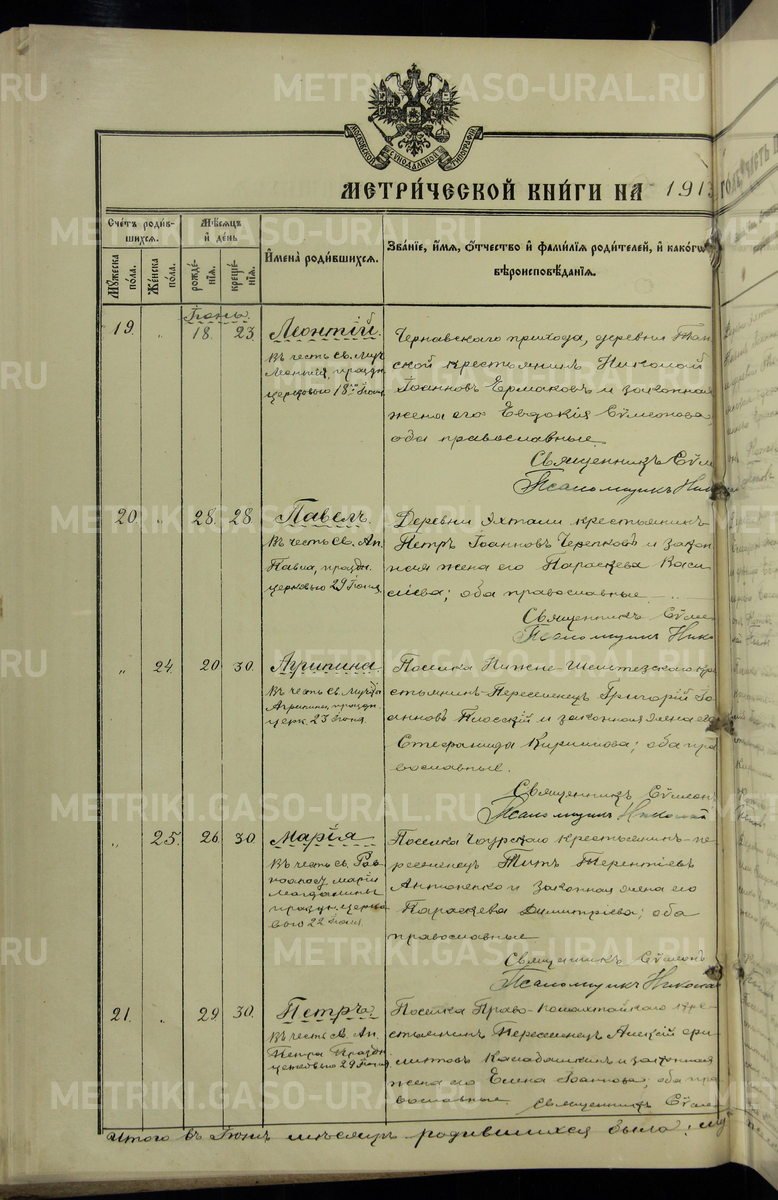 МОСКОВСКОЙ СѴНОДАЛЬНОЙ ТИПОГРАФІИ
МЕТРИ́ЧЕСКОЙ КНИ́ГИ НА 1913
Счетъ родив-
шихся.
Мѣсяцъ
и день
Имена родившихся.
Званіе, имя, отчество и фамилія родителей, и какого
вѣроисповѣданія.
Мужеска пола.
Женска пола.
рожде-
нія.
креще-
нія.
Іюнь.
19. „ 18. 23. Леонтій
въ честь св. муч.
Леонтія, праздн.
церковью 18го Іюня
Чернавскаго прихода, деревни
ской крестьянинъ Николай
Іоанновъ Ермаковъ и законная
жена его Евдокія Сѵмеонова,
оба православные.
Священникъ Сѵме
Псаломщикъ Ник
20. „ 28. 28. Павелъ.
въ честь св. Ап.
Павла, праздн.
церковью 29 Іюня
Деревни Яхтали крестьянинъ
Петръ Іоанновъ Черепковъ и закон-
ная жена его Параскева Васи
лiева; оба православные
Священникъ Сѵме
Псаломщикъ Нико
„ 24. 20. 30. Агрипина
въ честь св. Муч.
Агрипины, праздн.
церк. 23 Іюня.
Поселка Нижне- кре
стьянинъ-Переселенецъ Григорій Іо
анновъ Плосскій и законная жена его
Стефанида Кириллова; оба пра
вославные.
Священникъ Сѵмеон
Псаломщикъ Николай
„ 25. 26 30. Марія
въ честь св. Рав-
ноапос. Маріи
Магдалины
праздн. церко
вью 22 Іюля.
Поселка крестьянинъ-пе-
реселенецъ Титъ Терентіевъ
Антоненко и законная жена его
Параскева Димитріева; оба
православные
Священникъ Сѵмеонъ
Псаломщикъ Никола
21. „ 29 30. Петръ
въ честь св. Ап.
Петра праздн.
церковью 29 Іюня
Поселка Право- кре-
стьянинъ Переселенецъ Алексій
и законная
жена его Елена Іоаннова; оба пра
вославные Священникъ Сѵме
Итого въ Іюнѣ мѣсяцѣ родившихся было: му
METRIKI.GASO-URAL.RU